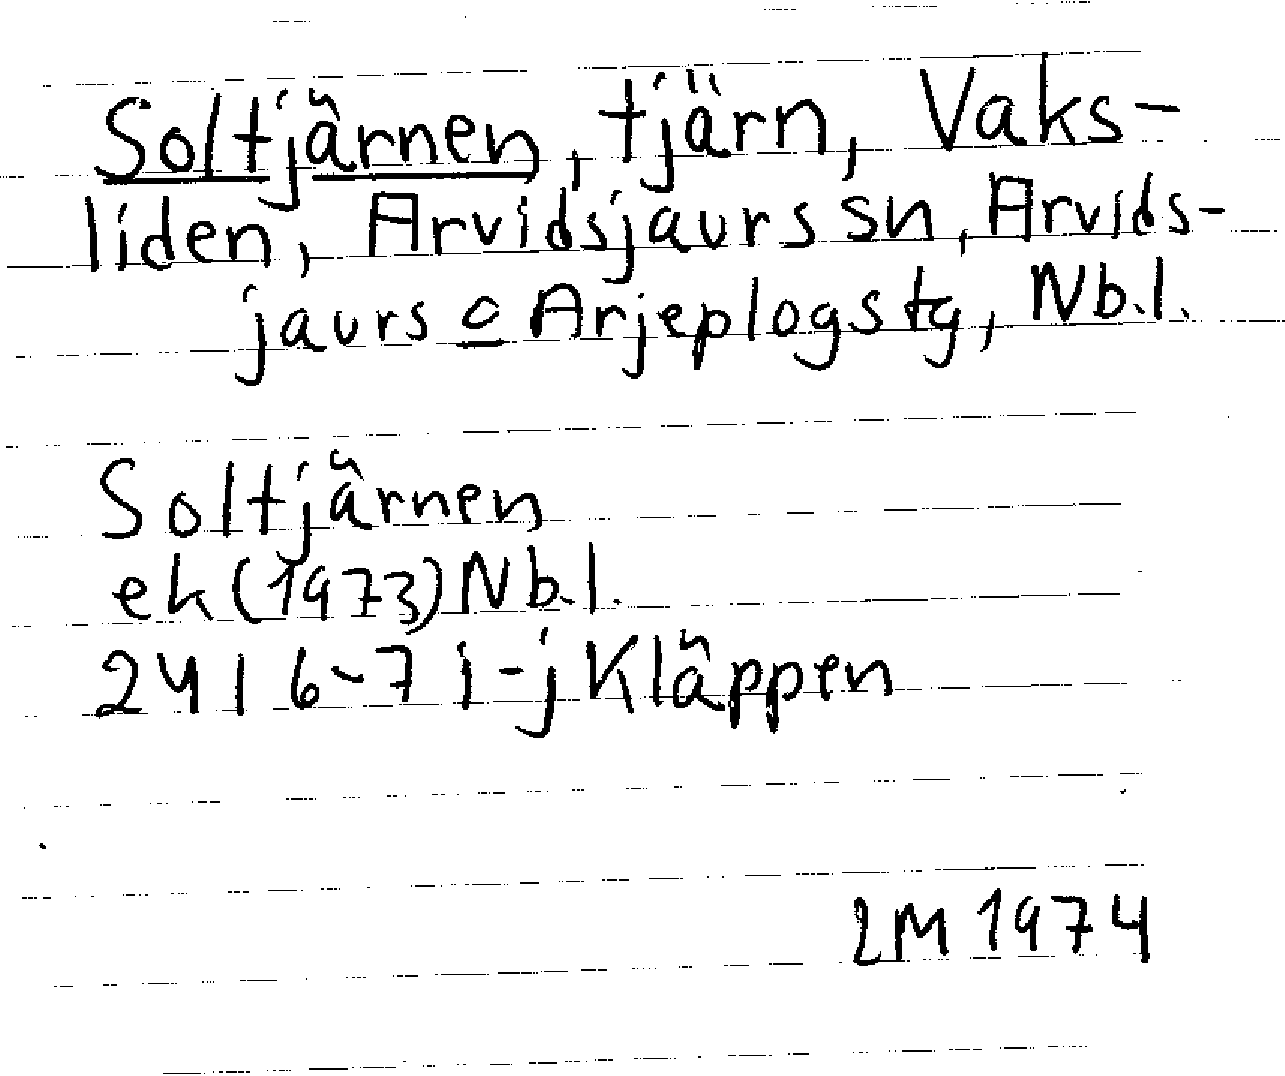 Soltjärnen, tjärn, Vaks-
liden, Arvidsjaurs sn, Arvids-
jaurs o Arjeplogs tg, Nb.l.
Soltjärnen
ek (1973) Nb.l.
24 I 6-7 i-j Kläppen
LM 1974